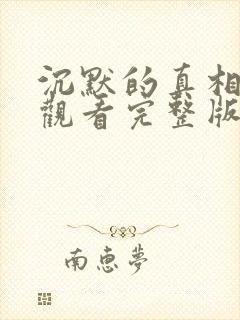 沉默的真相
觀看完整版
南惠夢